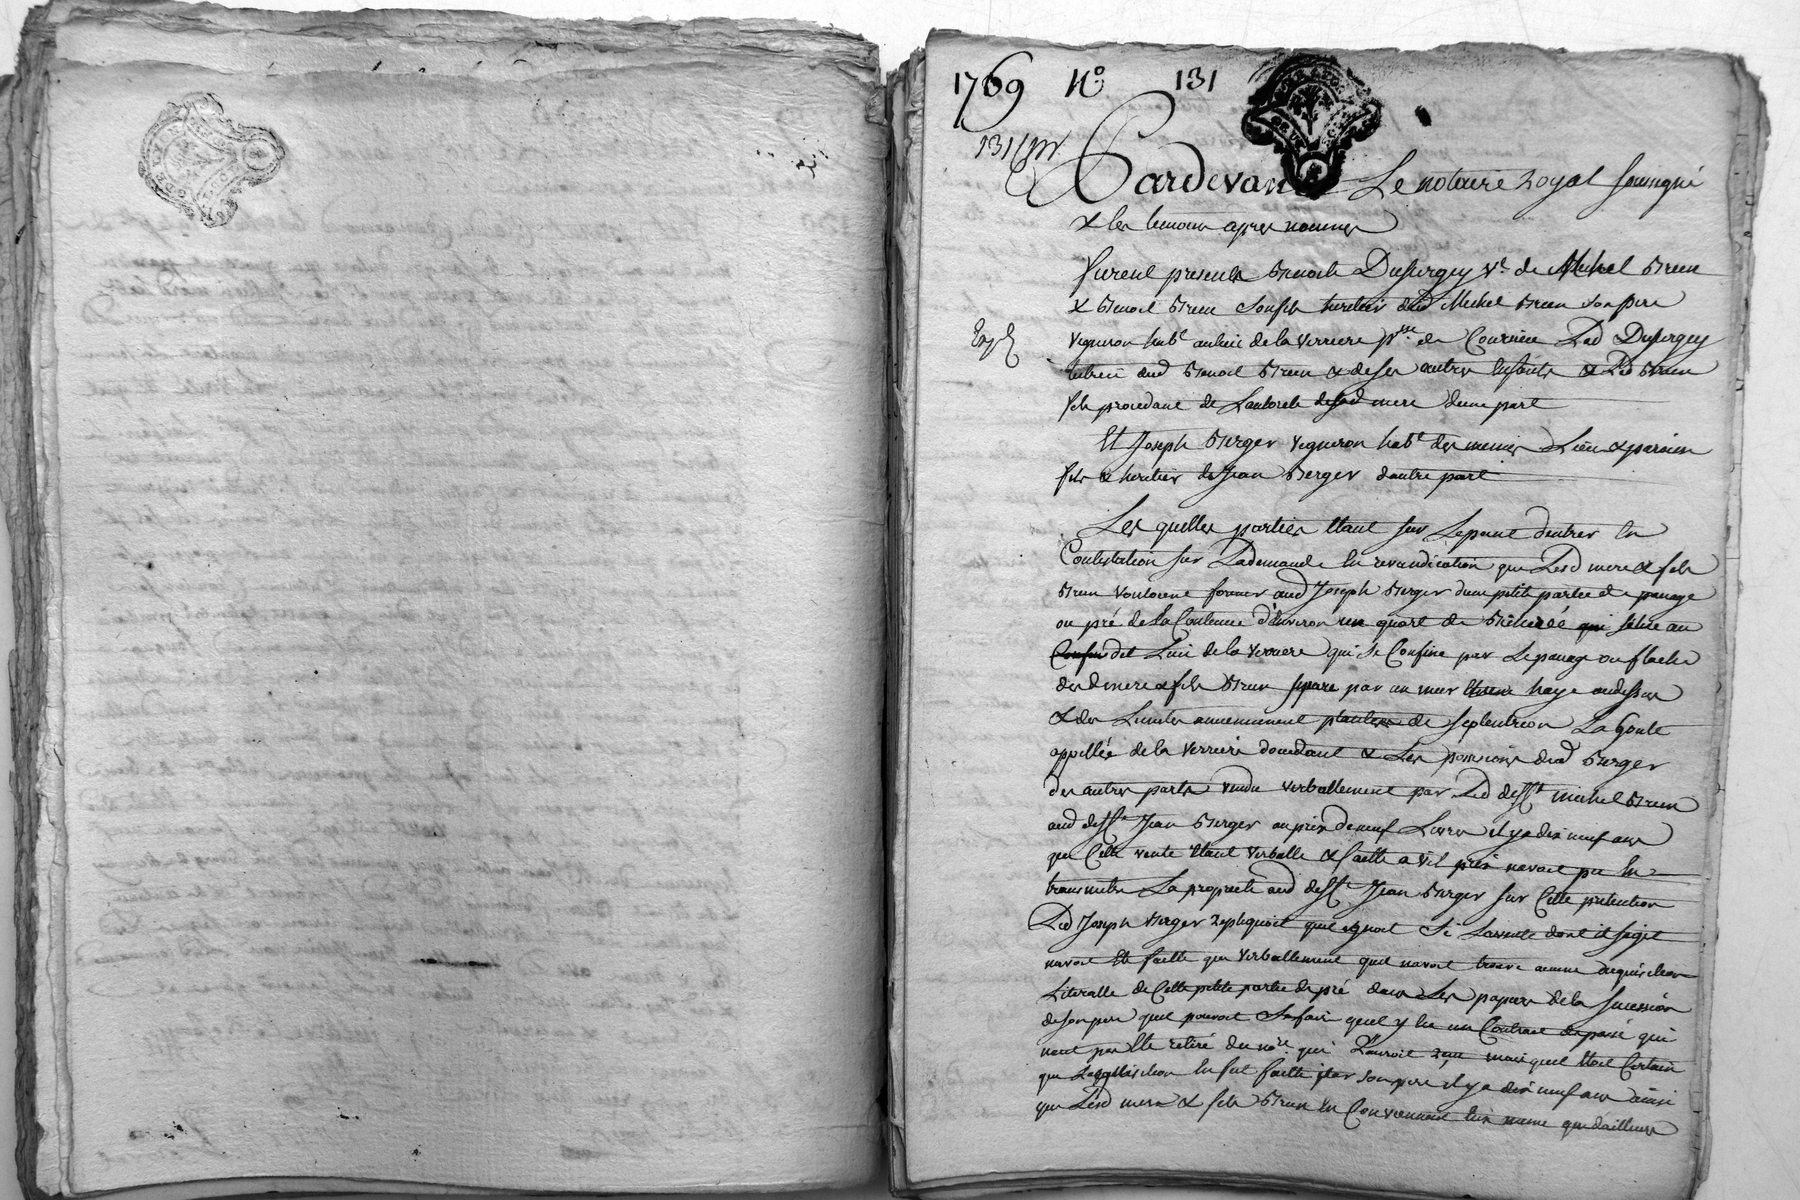 1769 No 131
131
Pardevant Le notaire Royal Soussigné
& les temoins apres nommes
furent presents Benoite Dusurgey Ve de Michel Brun
& Benoit Brun son fils heritier dud Michel Brun son pere
vigneron habt au lieu de la Verriere psse de Courzieu Lad Dusurgey
tutrice dud Benoit Brun & de ses autres Enfants & Led Brun
fils procedant de Lautorité de sad mere dune part
Et Joseph Berger vigneron habt des memes Lieu & paroisse
fils & heritier de Jean Berger dautre part
Les quelles parties Etant sur Le point dentrer En
Contestation sur La demande En revendication que Lesd mere & fils
Brun vouloient former aud Joseph Berger dune petite partie de
ou pré de la Contenue d'Environ un quart de Bicherée qui situé au
dit Lieu de la Verriere qui se Confine par Le ou flache
desd mere & fils Brun separé par un mur haye au dessus
& des Limites anciennement plantées de septentrion La goute
appellée de la Verriere doccident & Les possessions dud Berger
des autres parts vendu verballement par Led defft michel Brun
aud defft Jean Berger au prix de neuf Livres il y a dix neuf ans
que Cette vente Etant verballe & faitte a vil prix navoit pu En
transmettre La propriete aud defft Jean Berger sur Cette pretention
Led Joseph Berger repliquoit quil ignoroit Si La vente dont il sagit
navoit Eté faitte que verballement quil navoit trouvé aucune acquisition
Literalle de Cette petite partie de pré dans Les papiers de la succession
de son pere quil pouvoit se faire quil y Eut un Contract de passé qui
neut pas Eté retiré du nore qui L'auroit reçu mais quil Etoit Certain
que Lacquisition En fut faitte par son pere il y a dix neuf ans ainsi
que Lesd mere & fils Brun En Conviennent Eux meme que dailleurs